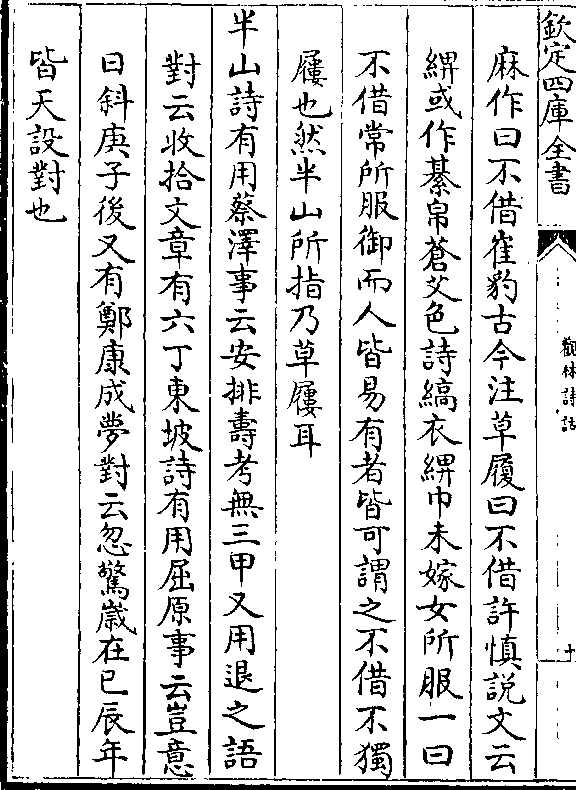 欽定四庫全書
觀林詩話
十
麻作曰不借崔豹古今注草履曰不借許慎説文云
綥或作綦帛蒼艾色詩縞衣綥巾未嫁女所服一曰
不借常所服御而人皆易有者皆可謂之不借不獨
屨也然半山所指乃草屨耳
半山詩有用蔡澤事云安排壽考無三甲又用退之語
對云收拾文章有六丁東坡詩有用屈原事云豈意
日斜庚子後又有鄭康成夢對云忽驚歲在巳辰年
皆天設對也